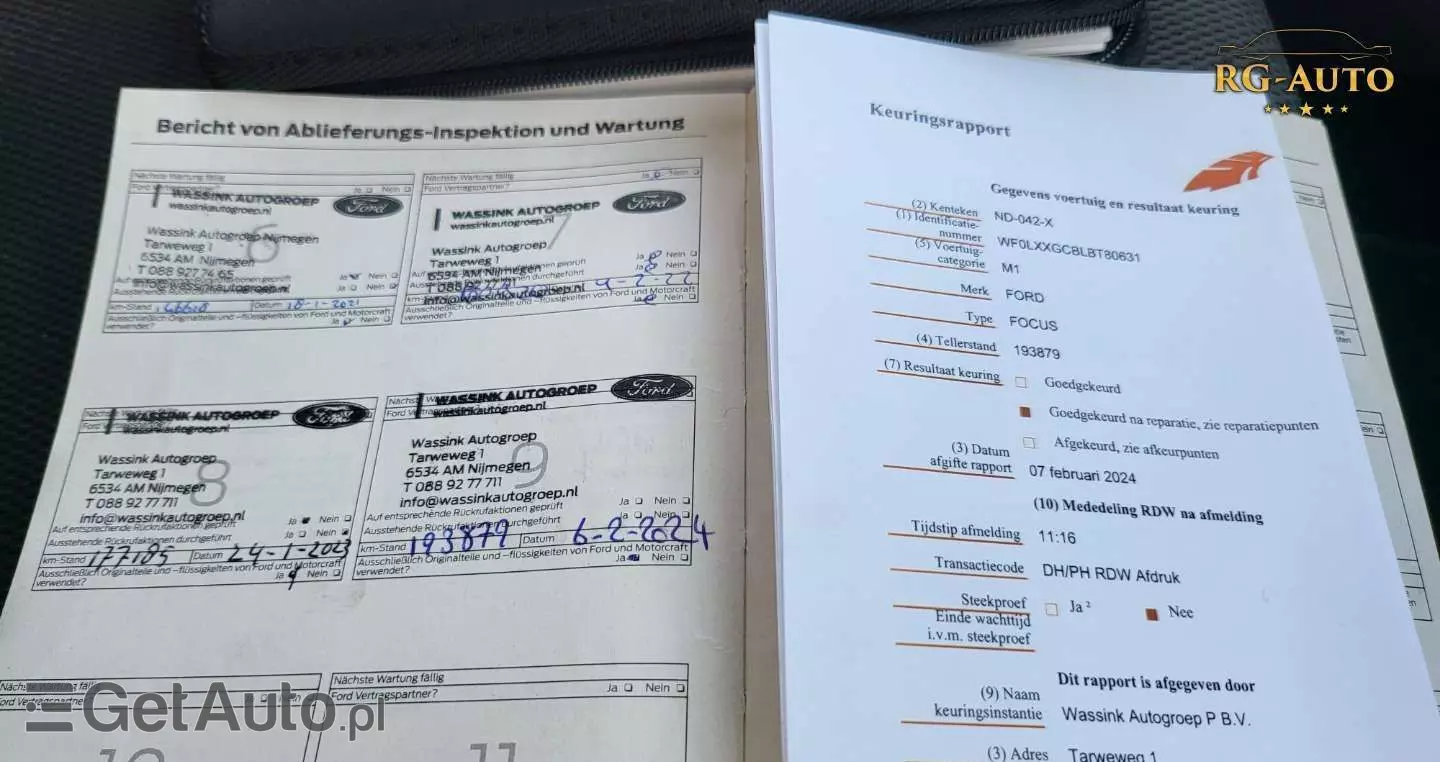 RG-AUTO
Bericht von Ablieferungs-Inspektion und Wartung
Nächste Wartung fällig
WASSINK AUTOGROEP
wassinkautogroep.nl
Ford
Wassink Autogroep Nijmegen
Tarweweg 1
6534 AM Nijmegen
T 088 927 74 65
info@wassinkautogroep.nl
6
Ja Nein
km-Stand Datum 18-1-2021
Ausschließlich Originalteile und -flüssigkeiten von Ford und Motorcraft
verwendet? Ja Nein
Nächste Wartung fällig Ja Nein
Ford Vertragspartner?
WASSINK AUTOGROEP
wassinkautogroep.nl
Ford
7
Wassink Autogroep
Tarweweg 1
6534 AM Nijmegen
T 088 92 77 711
info@wassinkautogroep.nl
Ja Nein
Ja Nein
km-Stand 9-2-22
Ausschließlich Originalteile und -flüssigkeiten von Ford und Motorcraft
verwendet? Ja Nein
WASSINK AUTOGROEP
wassinkautogroep.nl
Ford
8
Wassink Autogroep
Tarweweg 1
6534 AM Nijmegen
T 088 92 77 711
info@wassinkautogroep.nl
Auf entsprechende Rückrufaktionen geprüft Ja Nein
Ausstehende Rückrufaktionen durchgeführt Ja Nein
km-Stand 177185 Datum 24-1-2023
Ausschließlich Originalteile und -flüssigkeiten von Ford und Motorcraft
verwendet? Ja Nein
WASSINK AUTOGROEP
wassinkautogroep.nl
Ford
9
Wassink Autogroep
Tarweweg 1
6534 AM Nijmegen
T 088 92 77 711
info@wassinkautogroep.nl
Auf entsprechende Rückrufaktionen geprüft Ja Nein
Ausstehende Rückrufaktionen durchgeführt Ja Nein
km-Stand 193879 Datum 6-2-2024
Ausschließlich Originalteile und -flüssigkeiten von Ford und Motorcraft
verwendet? Ja Nein
Nächste Wartung fällig
Ford Vertragspartner?
10
Nächste Wartung fällig
Ford Vertragspartner? Ja Nein
11
GetAuto.pl
Keuringsrapport
Gegevens voertuig en resultaat keuring
(2) Kenteken ND-042-X
(1) Identificatie-
nummer WF0LXXGCBLBT80631
(5) Voertuig-
categorie M1
Merk FORD
Type FOCUS
(4) Tellerstand 193879
(7) Resultaat keuring Goedgekeurd
Goedgekeurd na reparatie, zie reparatiepunten
Afgekeurd, zie afkeurpunten
(3) Datum
afgifte rapport 07 februari 2024
(10) Mededeling RDW na afmelding
Tijdstip afmelding 11:16
Transactiecode DH/PH RDW Afdruk
Steekproef Ja ² Nee
Einde wachttijd
i.v.m. steekproef
Dit rapport is afgegeven door
(9) Naam
keuringsinstantie Wassink Autogroep P B.V.
(3) Adres Tarweweg 1